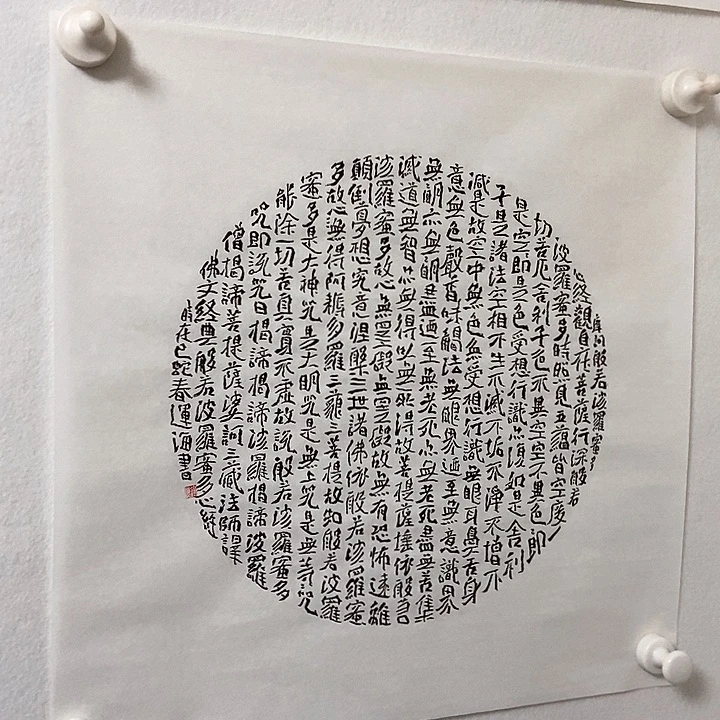 摩訶般若波羅蜜多
心經觀自在菩薩行深般若
波羅蜜多時照見五蘊皆空度一
切苦厄舍利子色不異空空不異色即
是空即是色受想行識亦復如是舍利
子是諸法空相不生不滅不垢不淨不增不
減是故空中無色無受想行識無眼耳鼻舌身
意無色聲香味觸法無眼界迺至無意識界
無明亦無明盡迺至無老死亦無老死盡無苦集
滅道無智亦無得以無所得故菩提薩埵依般若
波羅蜜多故心無罣礙無罣礙故無有恐怖遠離
顛倒夢想究竟涅槃三世諸佛依般若波羅蜜
多故心無得阿耨多羅三藐三菩提故知般若波羅
蜜多是大神咒是大明咒是無上咒是無等咒
能除一切苦真實不虛故說般若波羅蜜多
咒即說咒曰揭諦揭諦波羅揭諦波羅
僧揭諦菩提薩婆訶三藏法師譯
佛文經典般若波羅蜜多心經
時在巳蛇春運海書